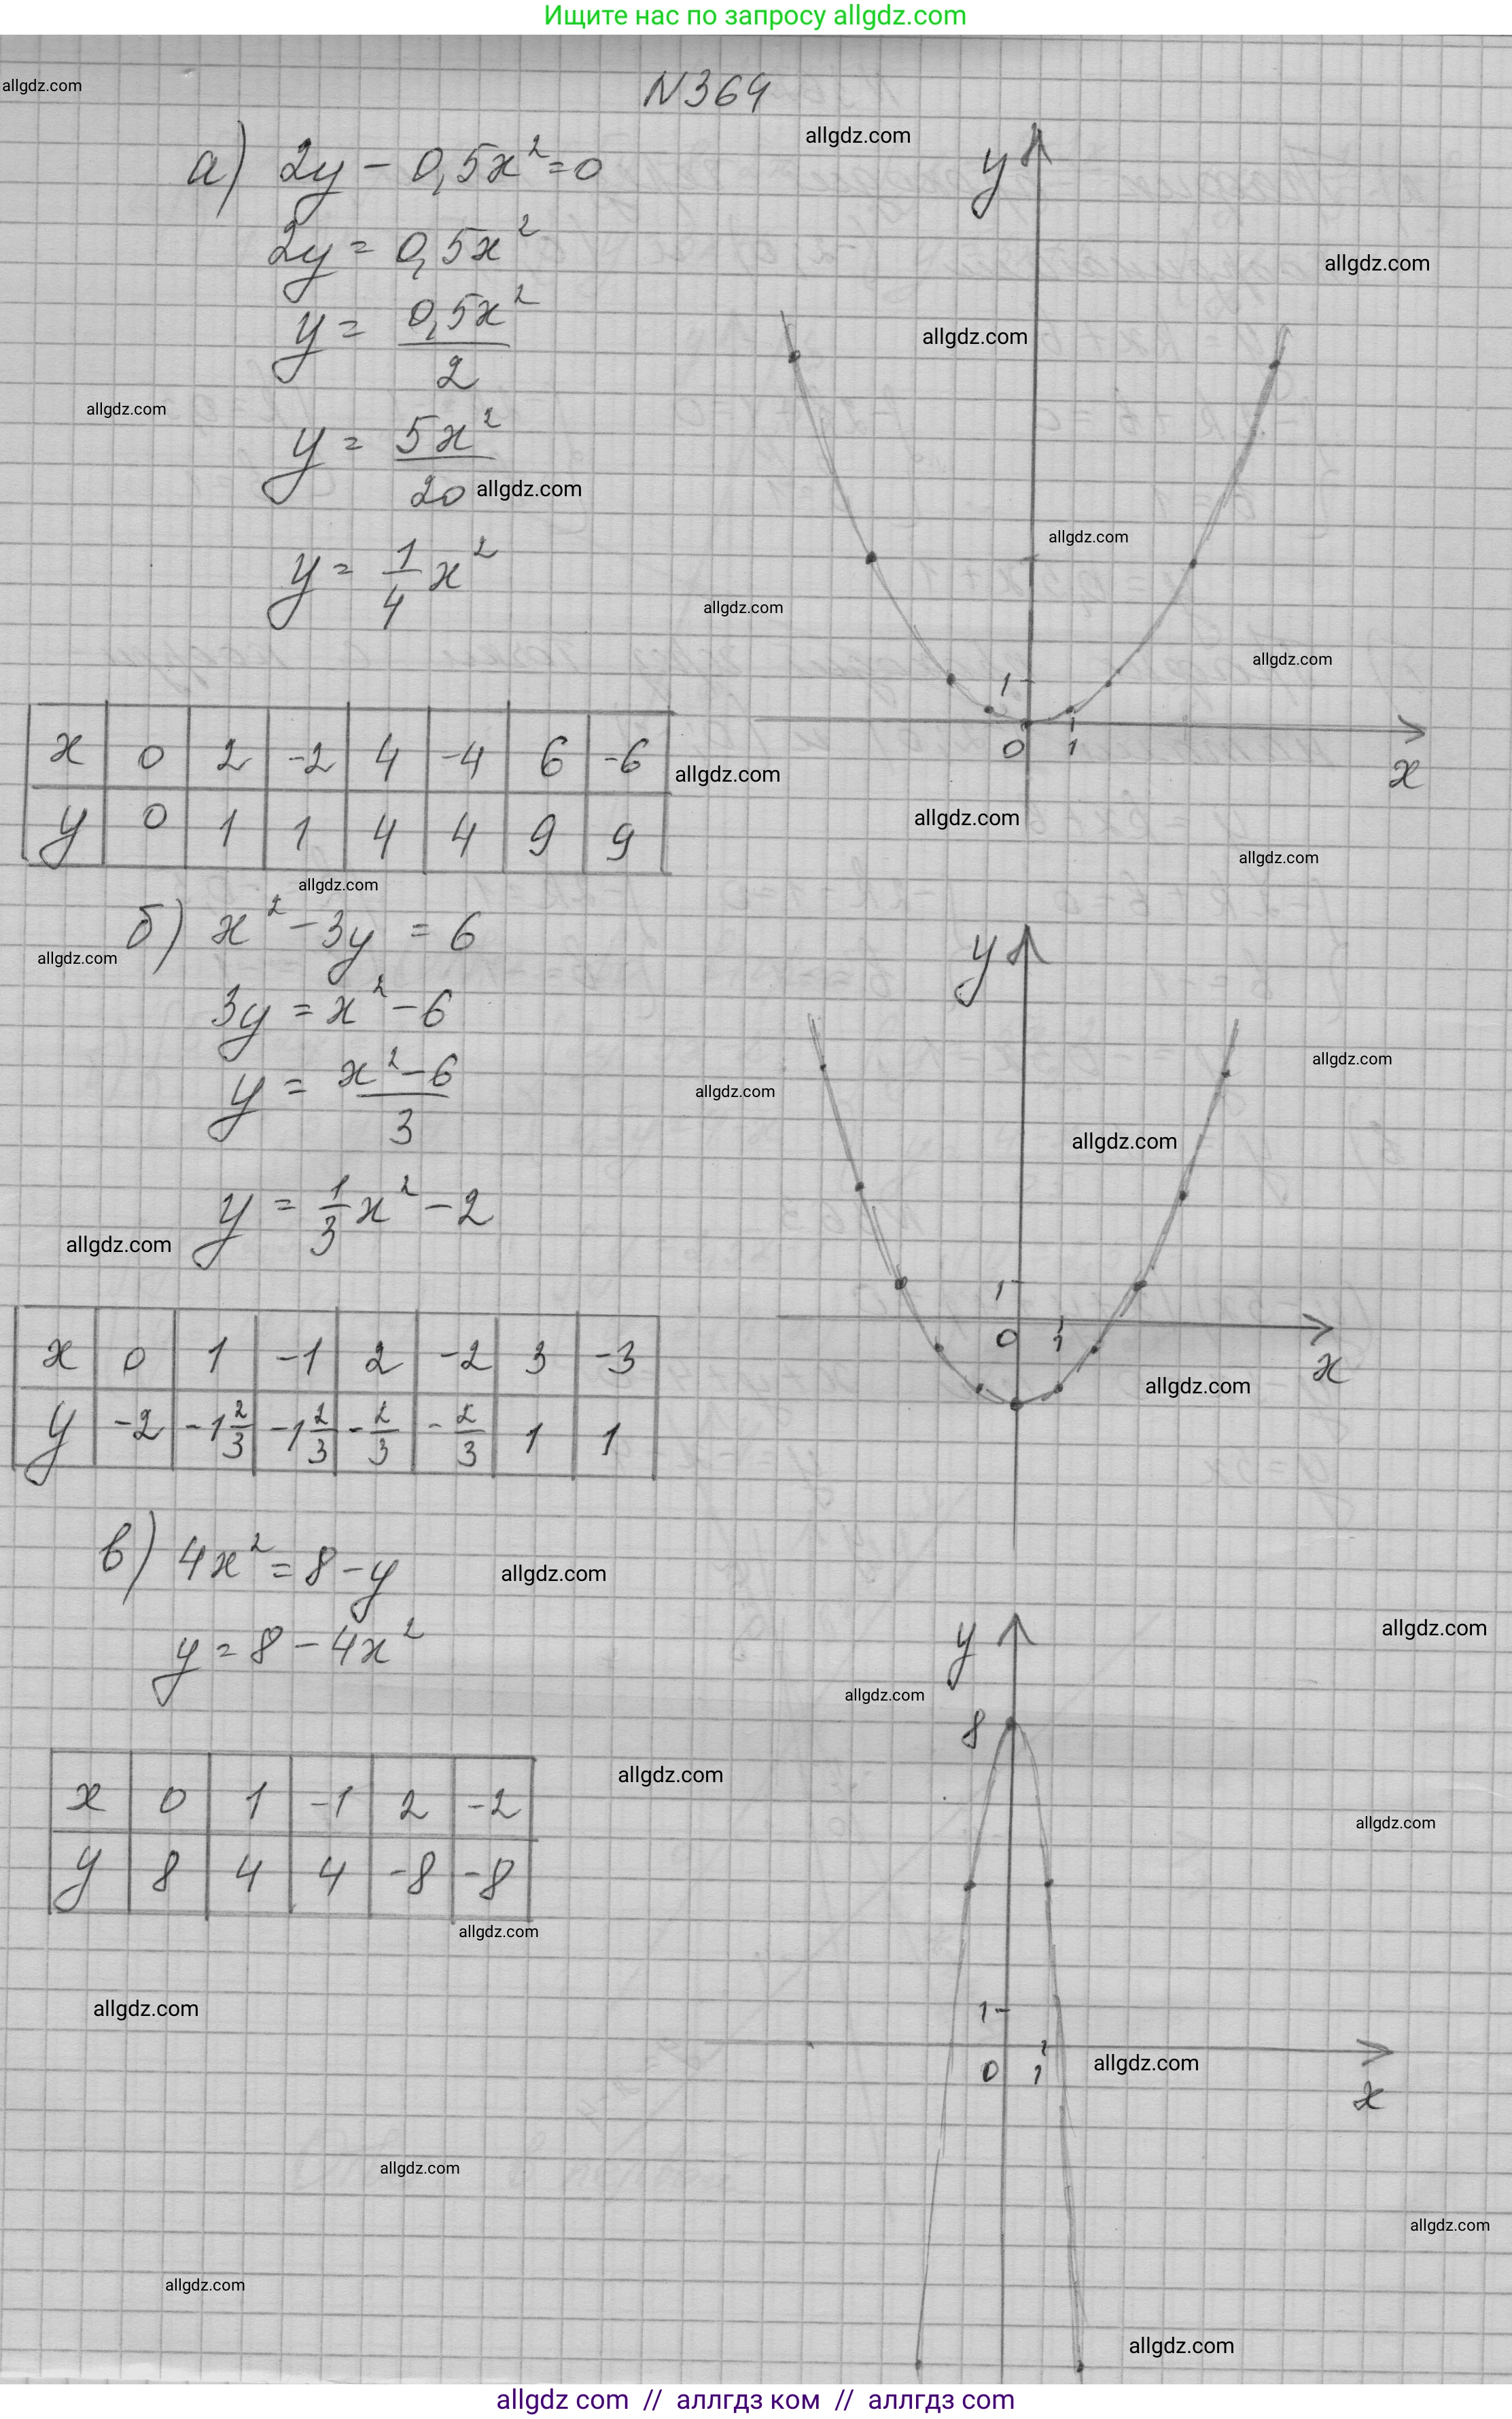 Ищите нас по запросу allgdz.com
allgdz.com
N364
allgdz.com
а) 2y - 0,5x² = 0
y
2y = 0,5x²
allgdz.com
y = 0,5x² / 2
allgdz.com
allgdz.com
y = 5x² / 20
allgdz.com
allgdz.com
y = 1/4 x²
allgdz.com
allgdz.com
1
0 1
x
x 0 2 -2 4 -4 6 -6
allgdz.com
y 0 1 1 4 4 9 9
allgdz.com
allgdz.com
allgdz.com
б) x² - 3y = 6
y
allgdz.com
3y = x² - 6
allgdz.com
y = x² - 6 / 3
allgdz.com
allgdz.com
y = 1/3 x² - 2
allgdz.com
1
0 1
x
x 0 1 -1 2 -2 3 -3
allgdz.com
y -2 -1 2/3 -1 2/3 -2/3 -2/3 1 1
в) 4x² = 8 - y
allgdz.com
y = 8 - 4x²
y
allgdz.com
allgdz.com
8
x 0 1 -1 2 -2
allgdz.com
allgdz.com
y 8 4 4 -8 -8
allgdz.com
allgdz.com
1
0 1
allgdz.com
x
allgdz.com
allgdz.com
allgdz.com
allgdz.com
allgdz com // аллгдз ком // аллгдз com